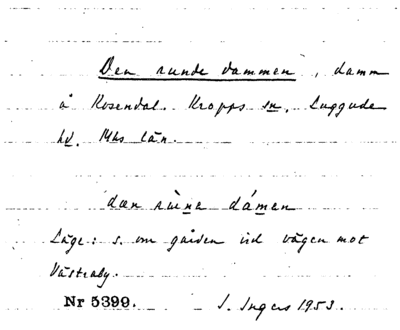 Den runde dammen, damm
å Rosendal. Kropps sn, Luggude
hd. Mhs län.
dæn ròne dámen
Läge: s. om gården vid vägen mot
Västraby.
Nr 5399. I. Ingers 1953.